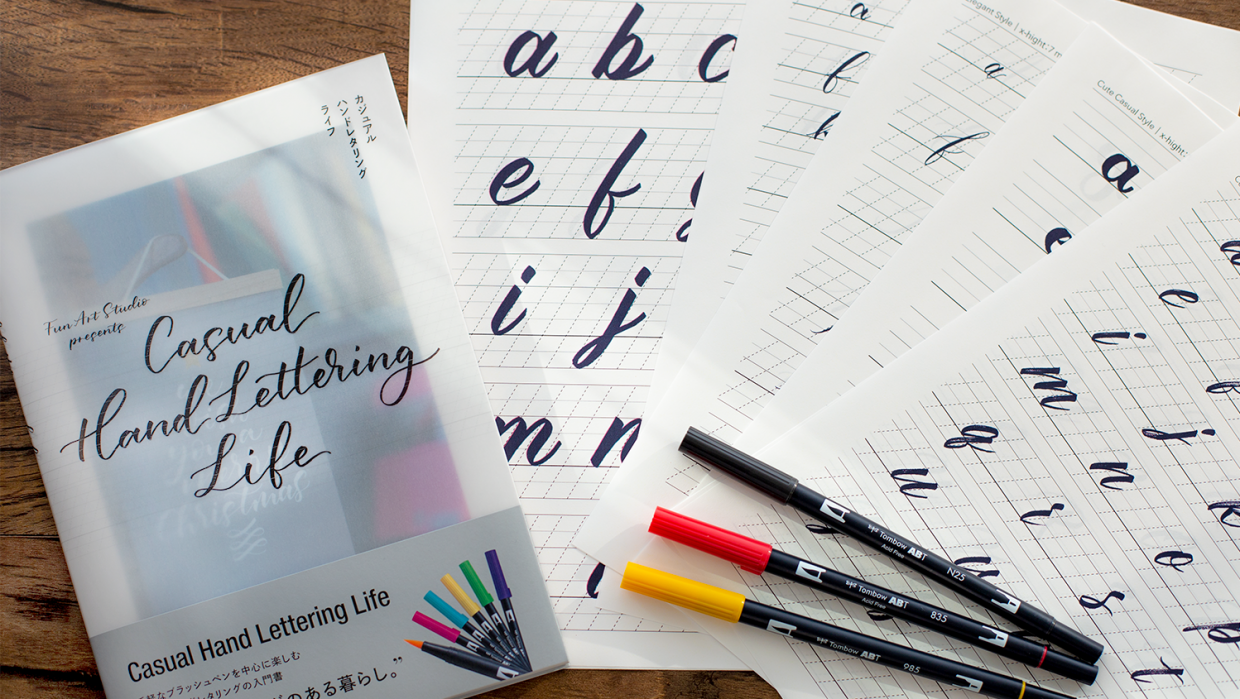 カジュアル
ハンドレタリング
ライフ
Fun Art Studio
presents
Casual
Hand Lettering
Life
Christmas
Casual Hand Lettering Life
なブラッシュペンを中心に楽しむ
レタリングの入門書
のある暮らし。”
a b c
e f
i j
m n
a
f
k
Elegant Style | x-hight: 7 m
a
f
Cute Casual Style | x-hight:
a
e
e
i j
m n o
q r s t
u
Tombow ABT
Acid Free
N25
Tombow ABT
835
Tombow ABT
985